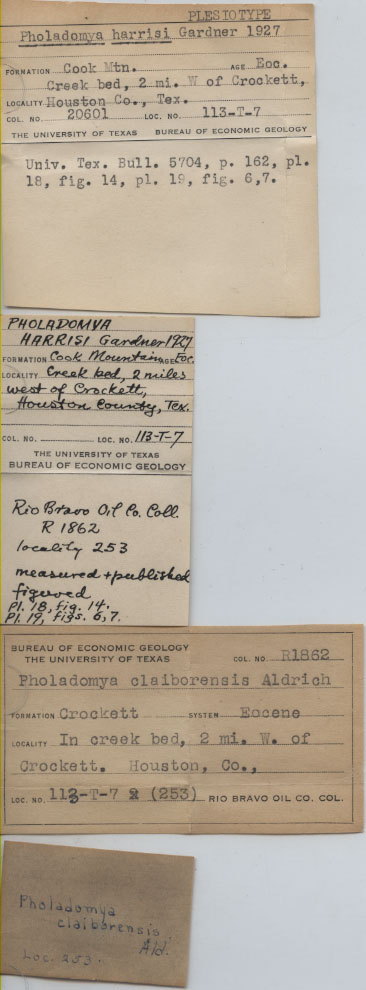 PLESIOTYPE
Pholadomya harrisi Gardner 1927
FORMATION Cook Mtn. AGE Eoc.
Creek bed, 2 mi. W of Crockett,
LOCALITY Houston Co., Tex.
COL. NO. 20601 LOC. NO. 113-T-7
THE UNIVERSITY OF TEXAS BUREAU OF ECONOMIC GEOLOGY
Univ. Tex. Bull. 5704, p. 162, pl.
18, fig. 14, pl. 19, fig. 6,7.
PHOLADOMYA
HARRISI Gardner 1927
FORMATION Cook Mountain AGE Eoc.
LOCALITY Creek bed, 2 miles
west of Crockett,
Houston County, Tex.
COL. NO. LOC. NO. 113-T-7
THE UNIVERSITY OF TEXAS
BUREAU OF ECONOMIC GEOLOGY
Rio Bravo Oil Co. Coll.
R 1862
locality 253
measured + published
figured
Pl. 18, fig. 14.
Pl. 19, figs. 6,7.
BUREAU OF ECONOMIC GEOLOGY
THE UNIVERSITY OF TEXAS COL. NO. R1862
Pholadomya claibornsis Aldrich
FORMATION Crockett SYSTEM Eocene
LOCALITY In creek bed, 2 mi. W. of
Crockett. Houston, Co.,
LOC. NO. 113-T-7 (253) RIO BRAVO OIL CO. COL.
Pholadomya
claiborensis
Ald.
Loc. 253.